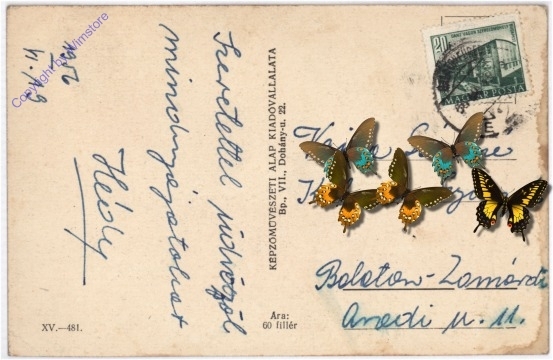 1956
Szeretettel üdvözöl
mindnyájatokat
Hédy
KÉPZŐMŰVÉSZETI ALAP KIADÓVÁLLALATA
Bp., VII., Dohány-u. 22.
XV.—481.
Ára:
60 fillér
20
MAGYAR POSTA
Balaton-Zamárdi
Aradi u. 11.
Copyright by Wimstore